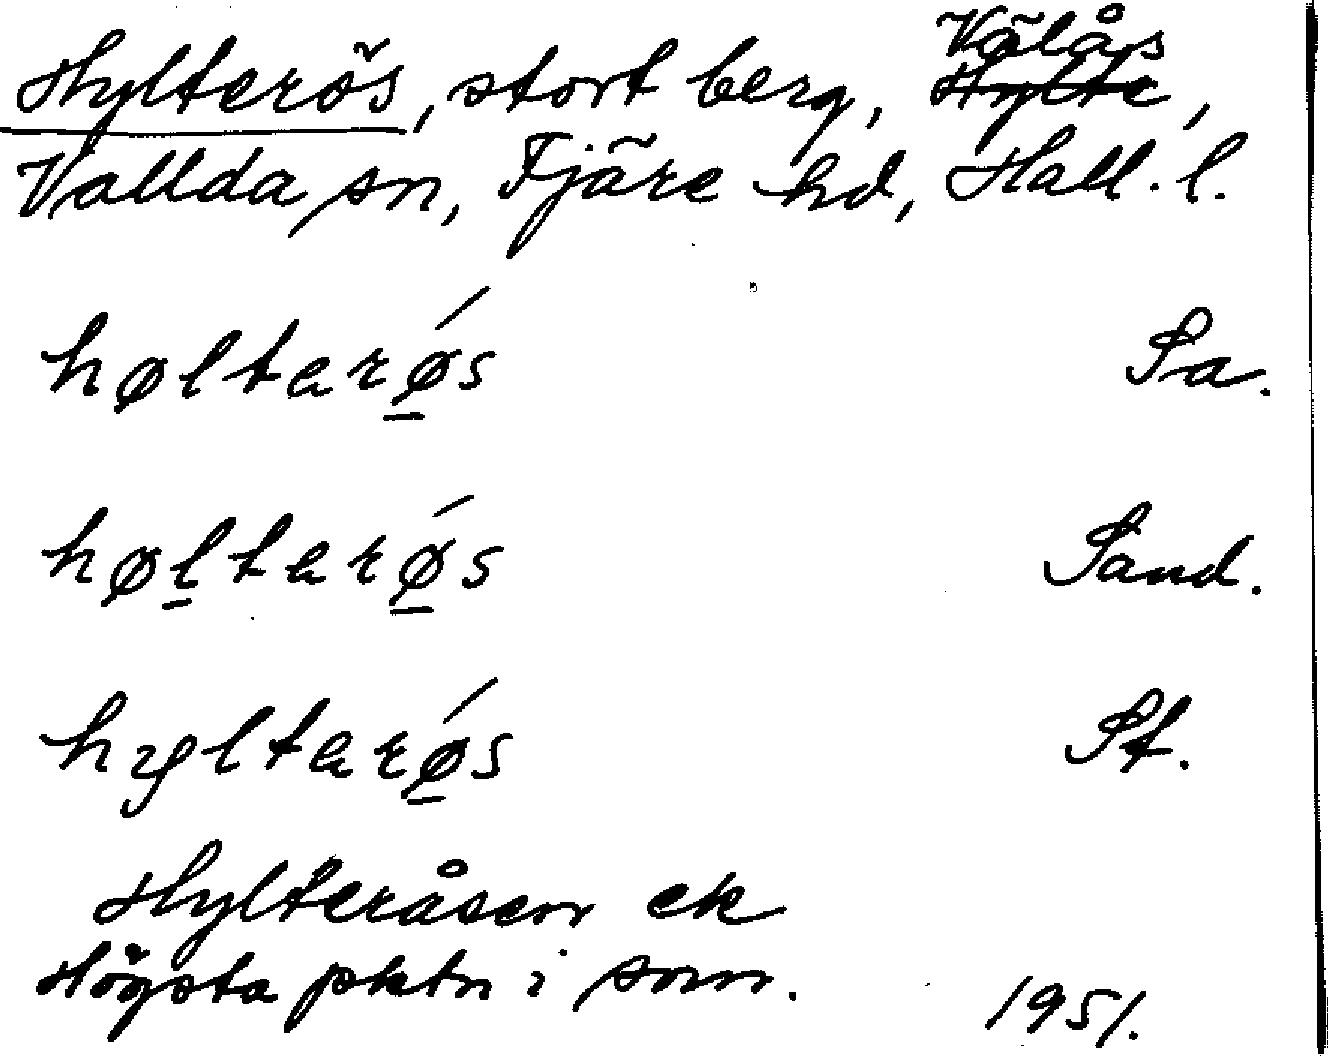 Hylterös, stort berg, Välås ~~Hylte~~,
Vallda sn, Fjäre hd, Hall. l.
hølterǿ̲s Sa.
høl̲terǿ̲s Sand.
hylterǿ̲s St.
Hylteråsen ek
Högsta pktn i sorn.
1951.